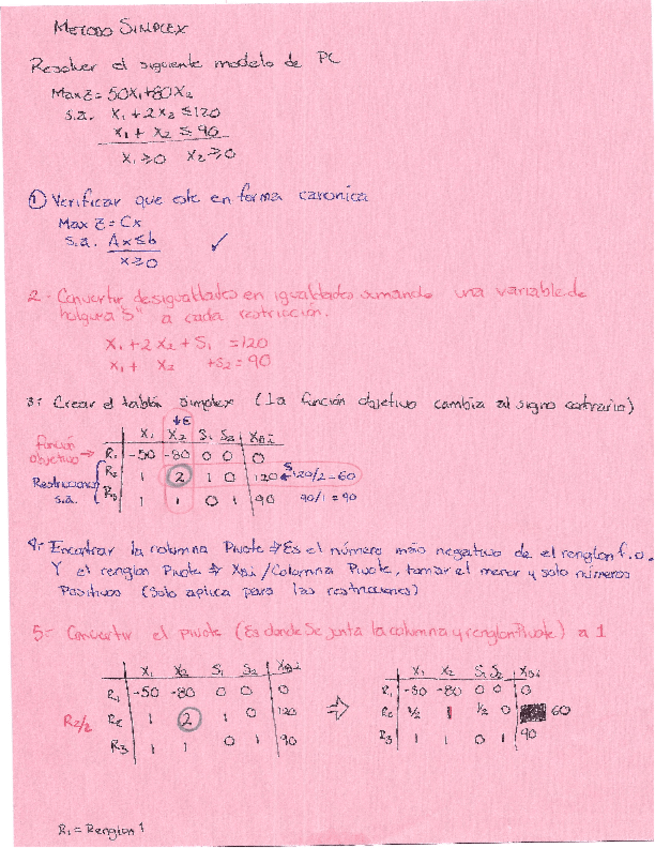 METODO SIMPLEX
Resolver el siguiente modelo de PL
Max Z = 50X₁+80X₂
s.a. X₁ + 2X₂ ≤ 120
X₁ + X₂ ≤ 90
X₁ ≥ 0 X₂ ≥ 0
① Verificar que este en forma canonica
Max Z = Cx
s.a. Ax ≤ b ✓
x ≥ 0
2.- Convertir desigualdades en igualdades sumando una variable de
holgura "S" a cada restricción.
X₁ + 2X₂ + S₁ = 120
X₁ + X₂ + S₂ = 90
3.- Crear el tablón simplex (la función objetivo cambia al signo contrario)
↓E
X₁ X₂ S₁ S₂ XBi
función objetivo → R₁ -50 -80 0 0 0
Restricciones R₂ 1 2 1 0 120 ← S 120/2 = 60
s.a. R₃ 1 1 0 1 90 90/1 = 90
4.- Encontrar la columna Pivote → Es el número más negativo de el renglon f.o.
Y el renglon Pivote → XBi/Columna Pivote, tomar el menor y solo números
Positivos (Solo aplica para las restricciones)
5.- Convertir el pivote (Es donde se junta la columna y renglon Pivote) a 1
X₁ X₂ S₁ S₂ XBi
R₁ -50 -80 0 0 0
R₂/2 R₂ 1 2 1 0 120
R₃ 1 1 0 1 90
⇒
X₁ X₂ S₁ S₂ XBi
R₁ -50 -80 0 0 0
R₂ ½ 1 ½ 0 60
R₃ 1 1 0 1 90
R₁ = Renglon 1